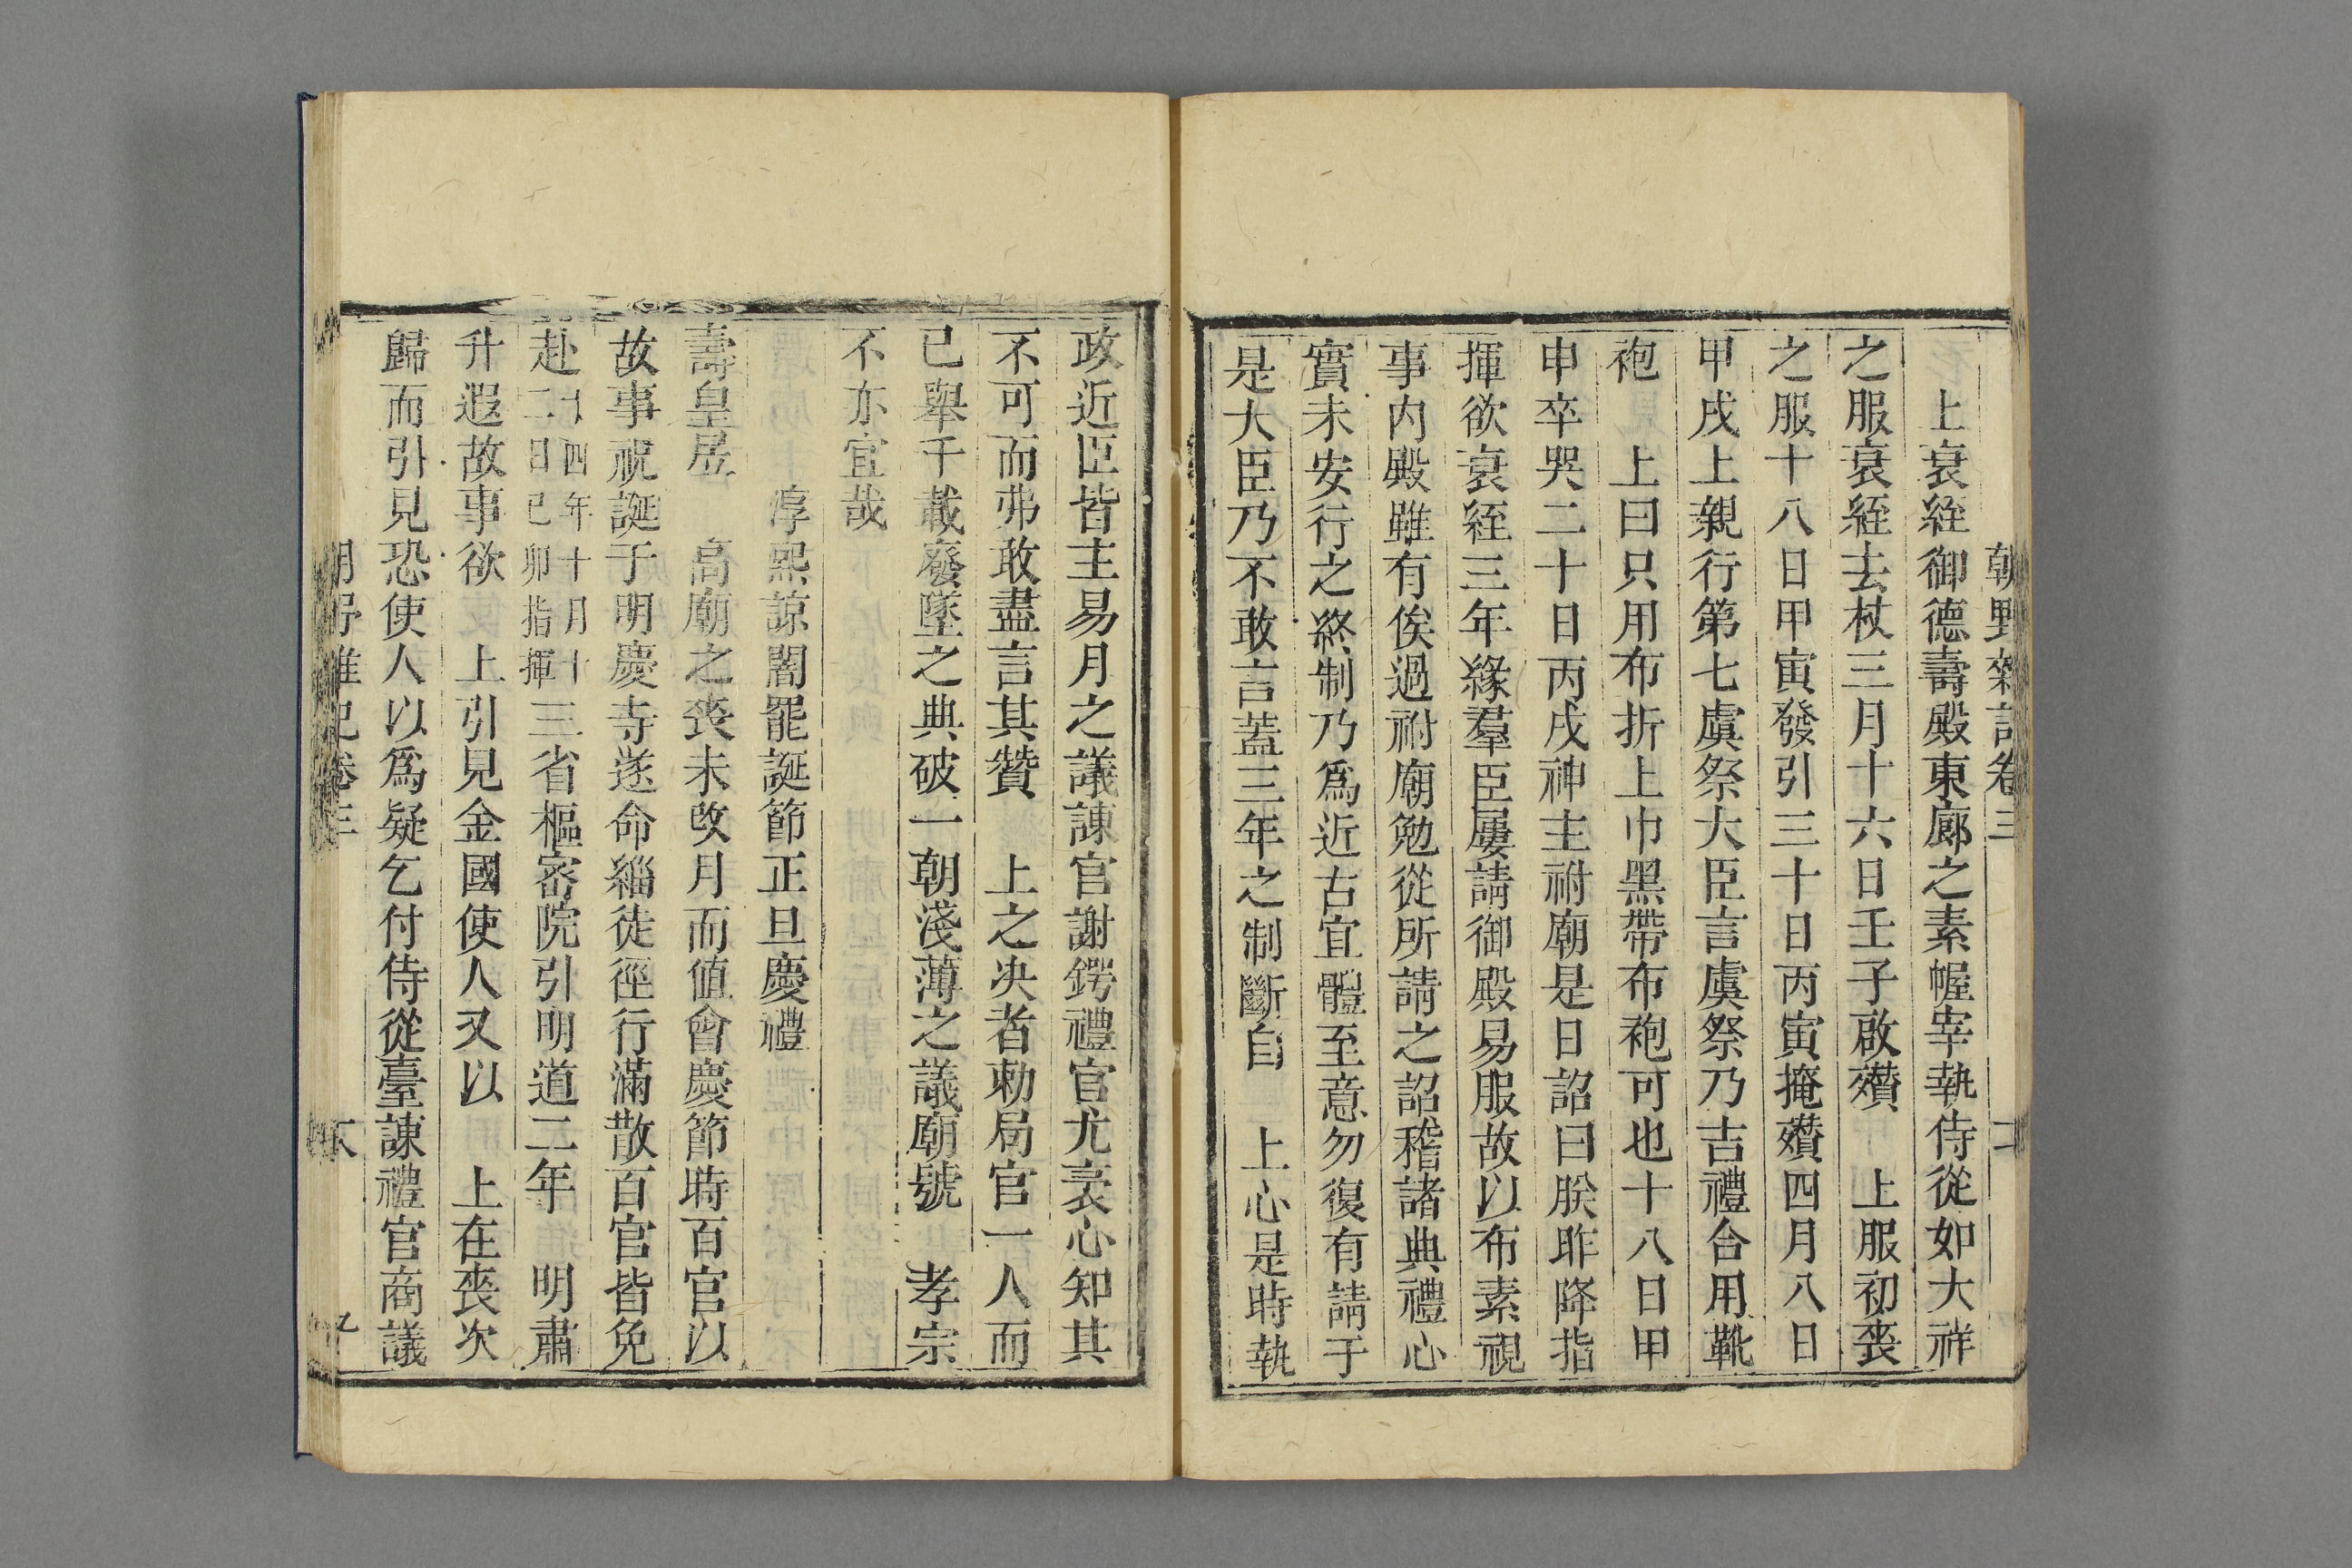 朝野雜記卷三
上衰絰御德壽殿東廊之素幄宰執侍從如大祥
之服衰絰去杖三月十六日壬子啟欑　上服初喪
之服十八日甲寅發引三十日丙寅掩欑四月八日
甲戌上親行第七虞祭大臣言虞祭乃吉禮合用靴
袍　上曰只用布折上巾黑帶布袍可也十八日甲
申卒哭二十日丙戌神主祔廟是日詔曰朕昨降指
揮欲衰絰三年緣羣臣屢請御殿易服故以布素視
事内殿雖有俟過祔廟勉從所請之詔稽諸典禮心
實未安行之終制乃爲近古宜體至意勿復有請于
是大臣乃不敢言蓋三年之制斷自　上心是時執
政近臣皆主易月之議諫官謝鍔禮官尤袤心知其
不可而弗敢盡言其贊　上之决者敕局官一人而
已舉千載廢墜之典破一朝淺薄之議廟號　孝宗
不亦宜哉
淳熙諒闇罷誕節正旦慶禮
壽皇居　高廟之喪未改月而値會慶節時百官以
故事祝誕于明慶寺遂命緇徒徑行滿散百官皆免
赴十四年十月十二日己卯指揮三省樞密院引明道二年　明肅
升遐故事欲　上引見金國使人又以　上在喪次
歸而引見恐使人以爲疑乞付侍從臺諫禮官商議
卷三